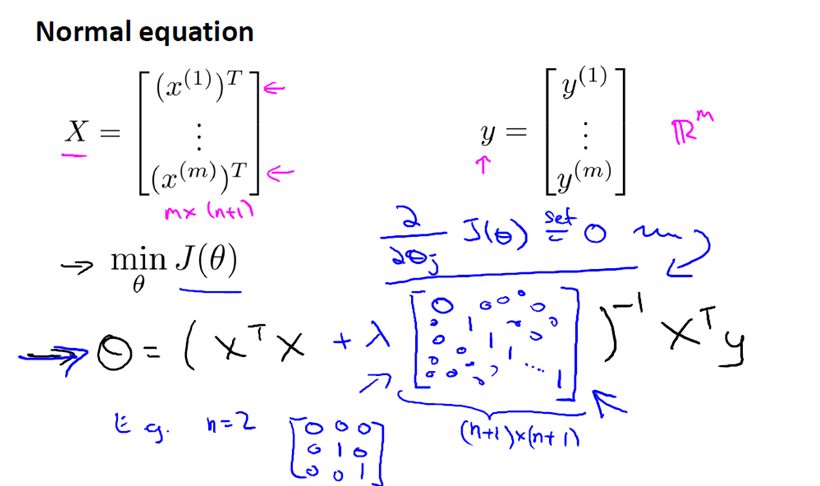 Normal equation
X = [ (x^(1))^T ⋮ (x^(m))^T ] ← ←
m×(n+1)
y = [ y^(1) ⋮ y^(m) ] ℝ^m
∂/∂θj J(θ) set = 0
→ min θ J(θ)
⇒ θ = ( X^T X + λ [ 0 0 0 0 0 1 1 1 .... 1 ] )^-1 X^T y
(n+1)×(n+1)
E.g. n=2
[ 0 0 0
0 1 0
0 0 1 ]